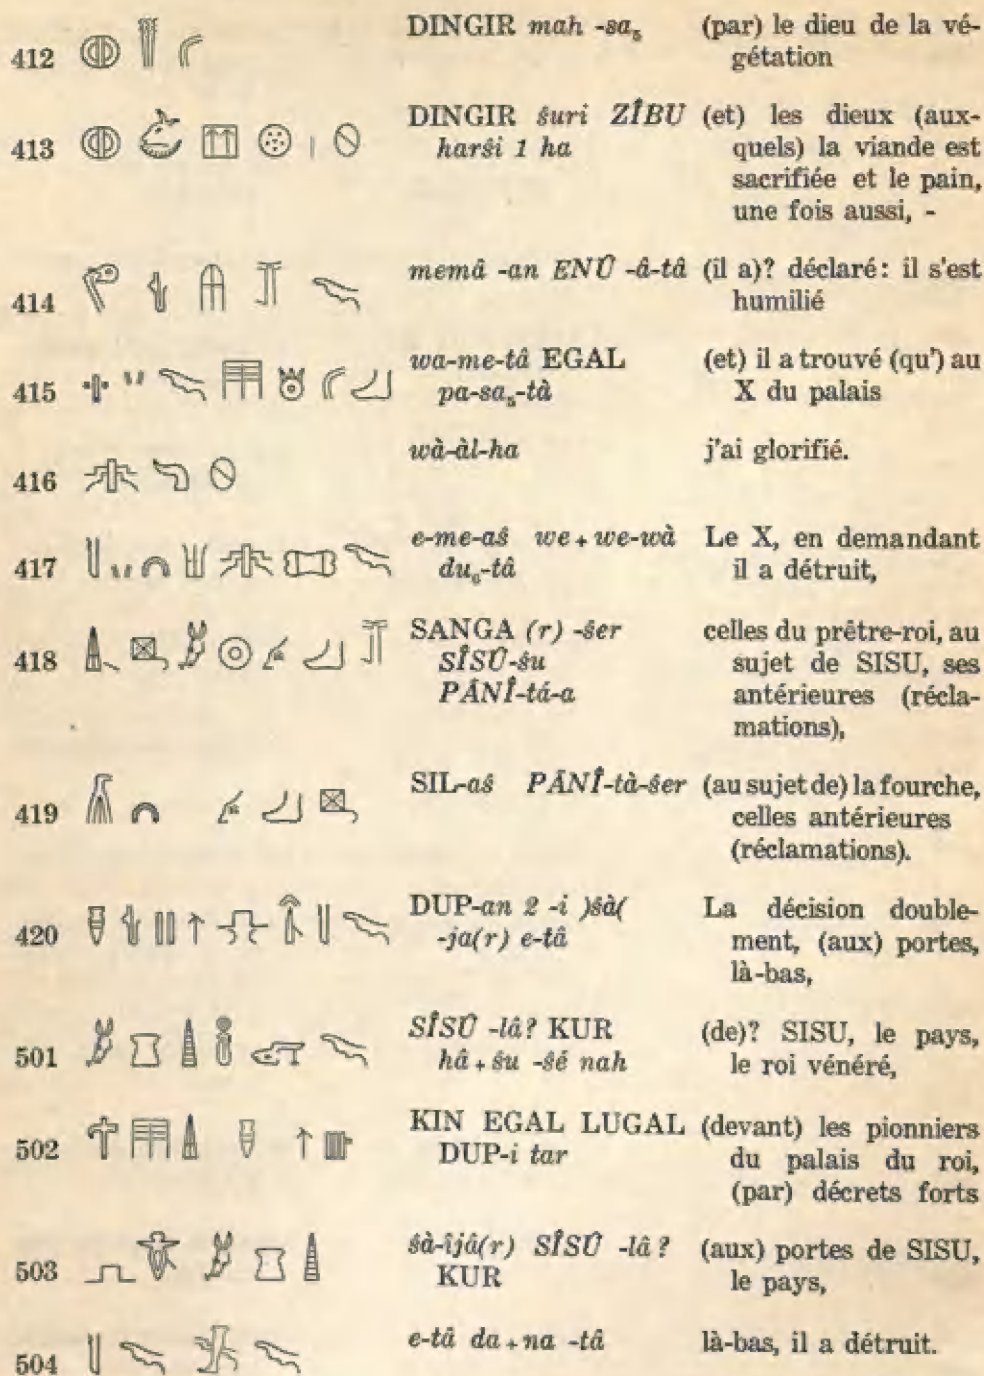 412 DINGIR mah -sa₅ (par) le dieu de la vé-
gétation
413 DINGIR šuri ZÎBU (et) les dieux (aux-
harši 1 ha quels) la viande est
sacrifiée et le pain,
une fois aussi, -
414 memâ -an ENÛ -â-tâ (il a)? déclaré: il s'est
humilié
415 wa-me-tâ EGAL (et) il a trouvé (qu') au
pa-sa₅-tà X du palais
416 wà-àl-ha j'ai glorifié.
417 e-me-aš we+we-wà Le X, en demandant
du₆-tâ il a détruit,
418 SANGA (r) -šer celles du prêtre-roi, au
SÎSÛ-šu sujet de SISU, ses
PÂNÎ-tá-a antérieures (récla-
mations),
419 SIL-aš PÂNÎ-tà-šer (au sujet de) la fourche,
celles antérieures
(réclamations).
420 DUP-an 2 -i )šà( La décision double-
-ja(r) e-tâ ment, (aux) portes,
là-bas,
501 SÎSÛ -lâ? KUR (de)? SISU, le pays,
hâ+šu -šé nah le roi vénéré,
502 KIN EGAL LUGAL (devant) les pionniers
DUP-i tar du palais du roi,
(par) décrets forts
503 šà-îjâ(r) SÎSÛ -lâ? (aux) portes de SISU,
KUR le pays,
504 e-tâ da+na -tâ là-bas, il a détruit.